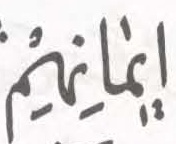 إِيمَانِهِمْ